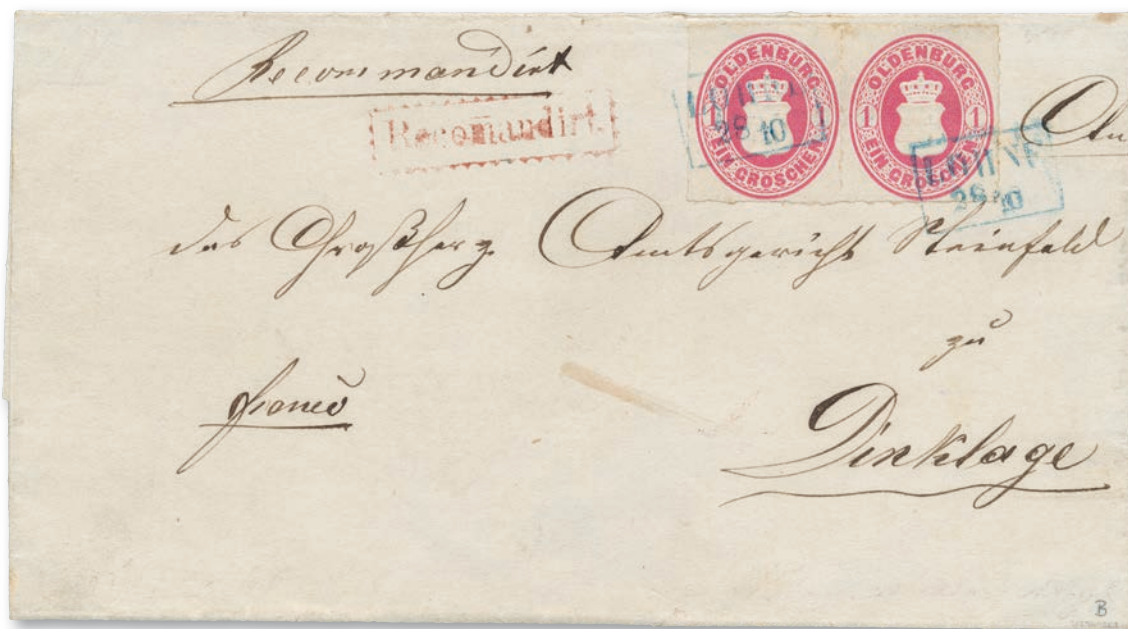 Recommandirt
Recomandirt.
OLDENBURG
1 1
EIN GROSCHEN
OLDENBURG
1 1
EIN GROSCHEN
28 10
LOHNE
28 10
An
das Großherz. Amtsgericht Steinfeld
zu
franco
Dinklage
B